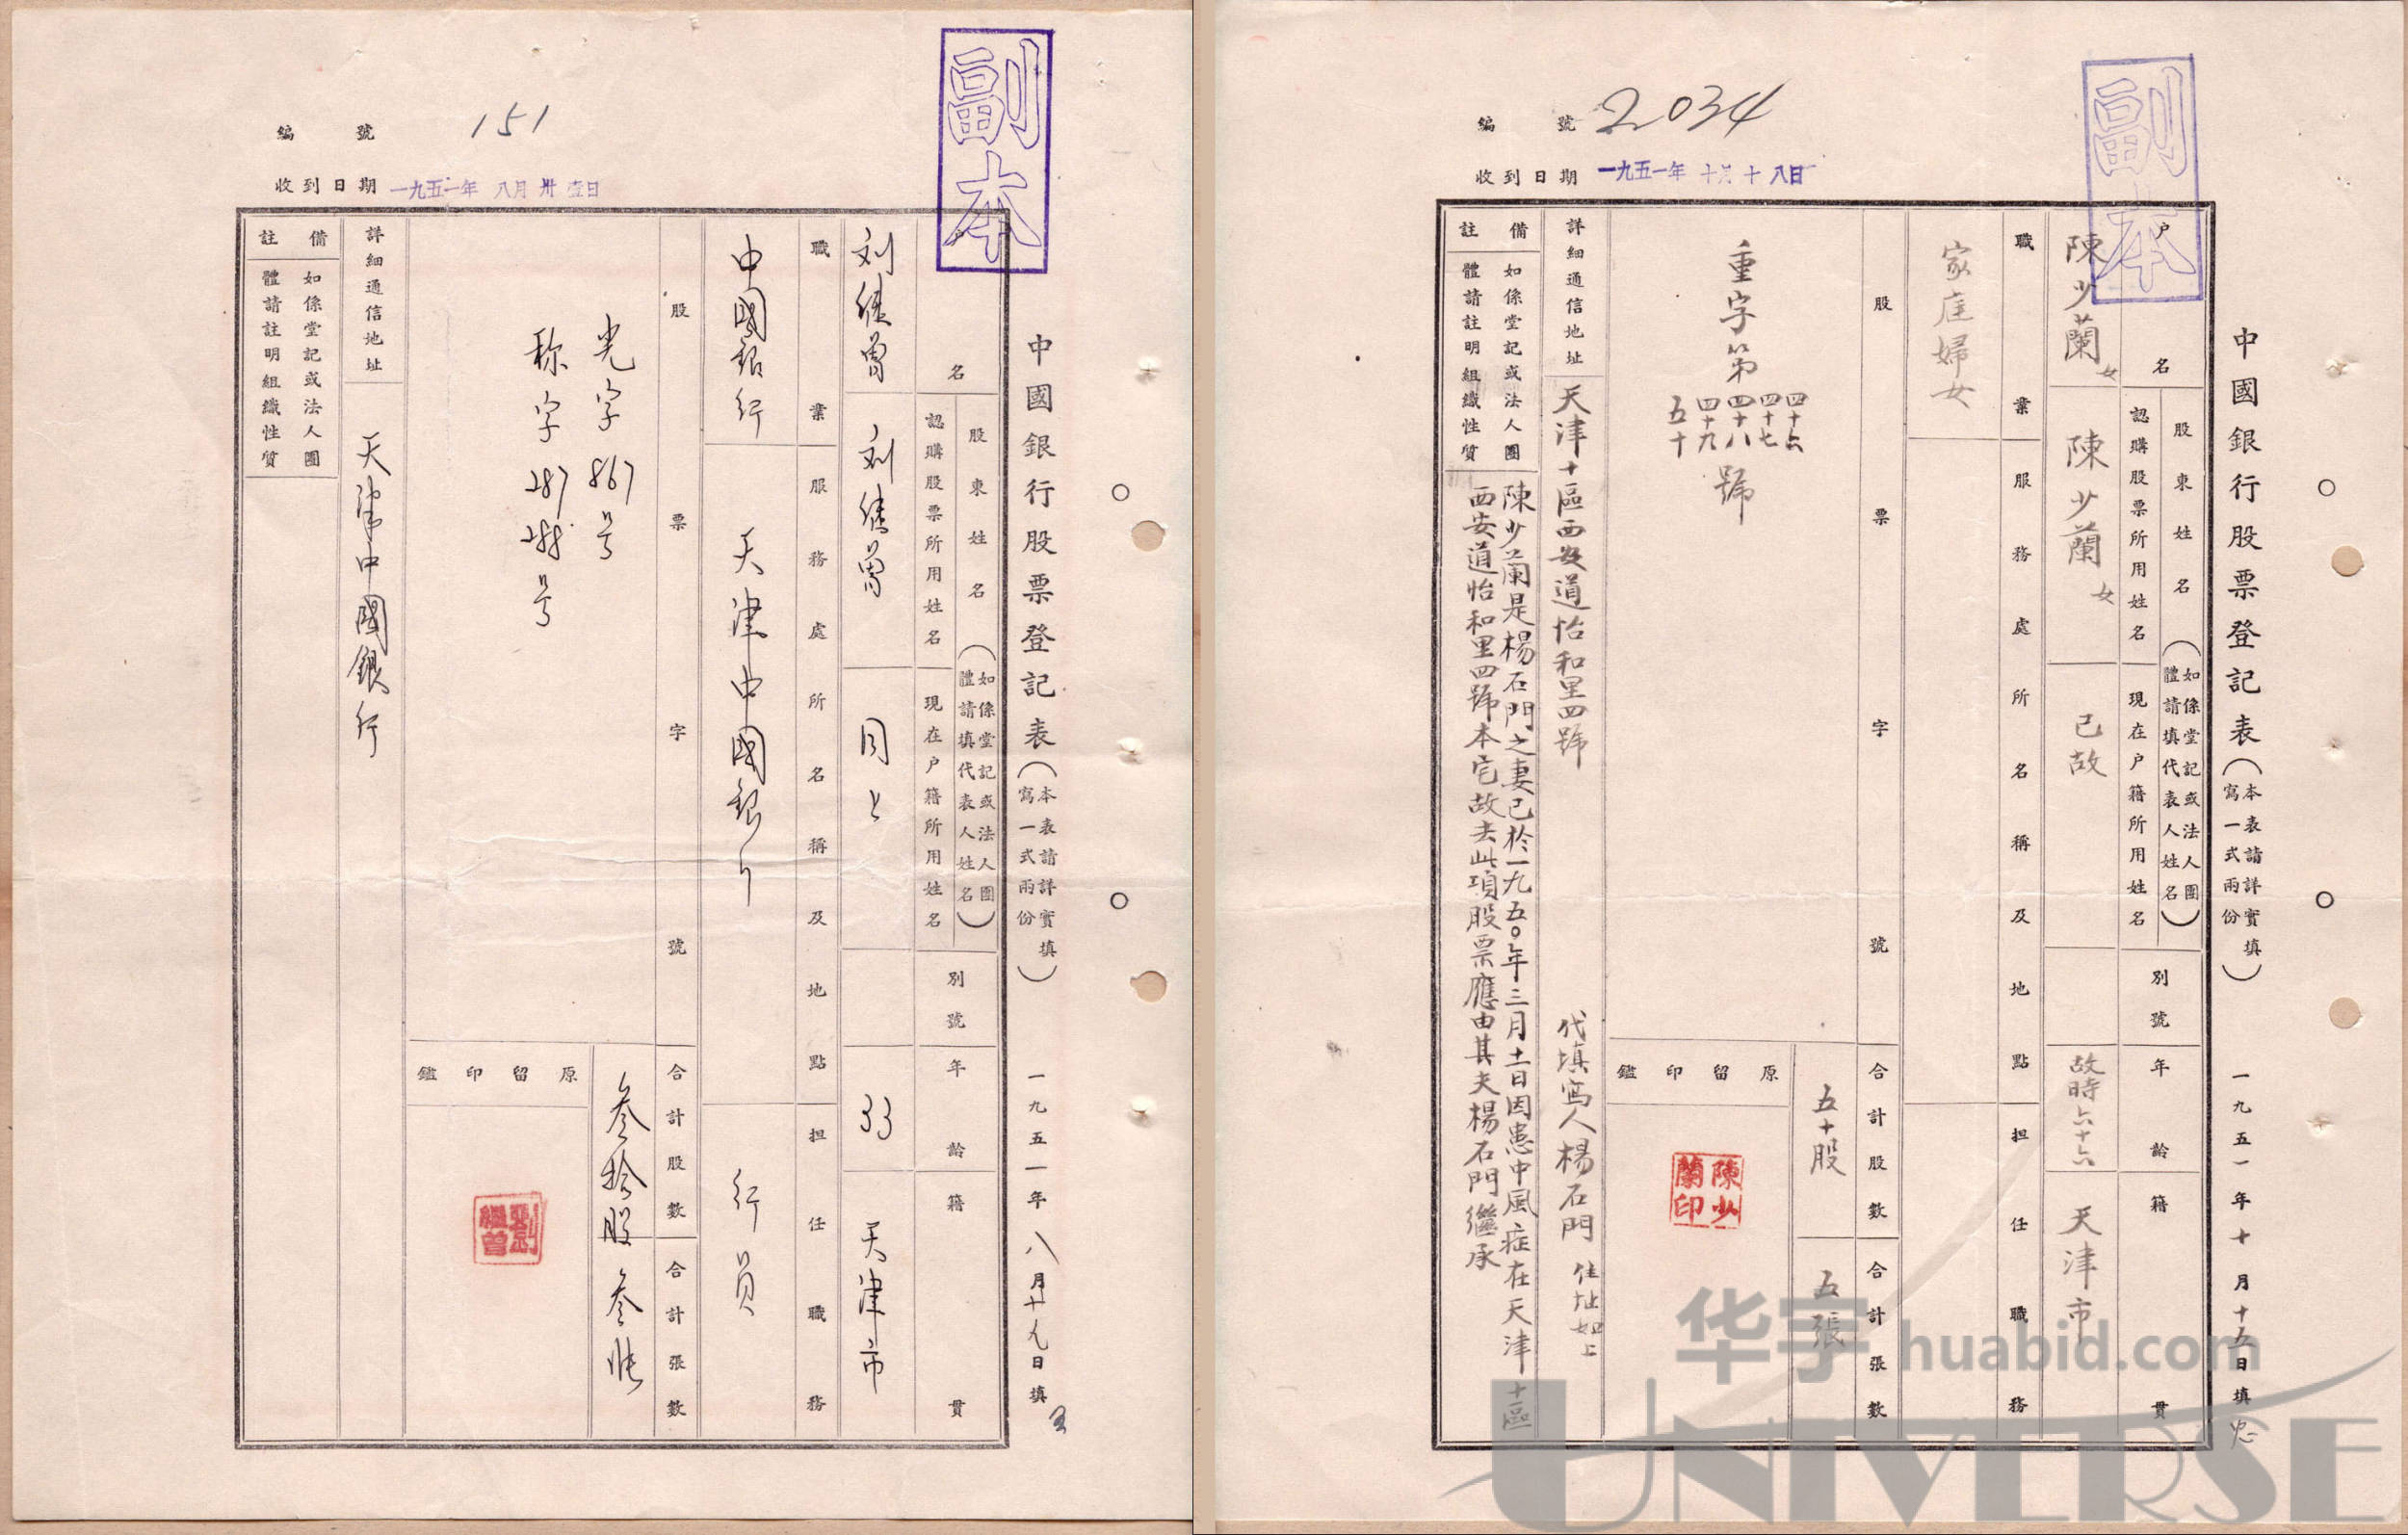 副本
編號 151
收到日期 一九五一年 八月 卅壹日
中國銀行股票登記表(本表請詳實填寫一式兩份) 一九五一年八月十九日填
名
股東姓名(如係堂記或法人團體請填代表人姓名)
認購股票所用姓名
現在户籍所用姓名
別號
年齡
籍貫
刘继曾
刘继曾
同上
33
天津市
職業
服務處所名稱及地點
担任職務
中國銀行
天津中國銀行
行員
股票字號
合計股數
合計張數
光字867号
称字287 288号
叁拾股
叁张
原留印鑑
劉繼曾
詳細通信地址
天津中國銀行
備註
如係堂記或法人團體請註明組織性質
副本
編號 2034
收到日期 一九五一年 十月十八日
中國銀行股票登記表(本表請詳實填寫一式兩份) 一九五一年十月十五日填
户名
股東姓名(如係堂記或法人團體請填代表人姓名)
認購股票所用姓名
現在户籍所用姓名
別號
年齡
籍貫
陳少蘭女
陳少蘭女
已故
故時六十六
天津市
職業
服務處所名稱及地點
担任職務
家庭婦女
股票字號
合計股數
合計張數
重字第四十六 四十七 四十八 四十九 五十號
五十股
五張
原留印鑑
陳少蘭印
詳細通信地址
天津十區西安道怡和里四號 代填寫人楊石門 住址如上
備註
如係堂記或法人團體請註明組織性質
陳少蘭是楊石門之妻已於一九五〇年三月十一日因患中風症在天津十區
西安道怡和里四號本宅故去此項股票應由其夫楊石門繼承
华宇 huabid.com
UNIVERSE